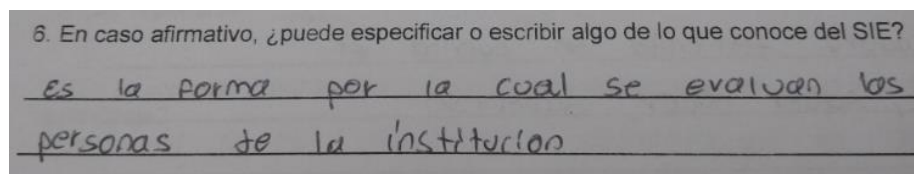 6. En caso afirmativo, ¿puede especificar o escribir algo de lo que conoce del SIE?
es la forma por la cual se evaluan los
personas de la institucion